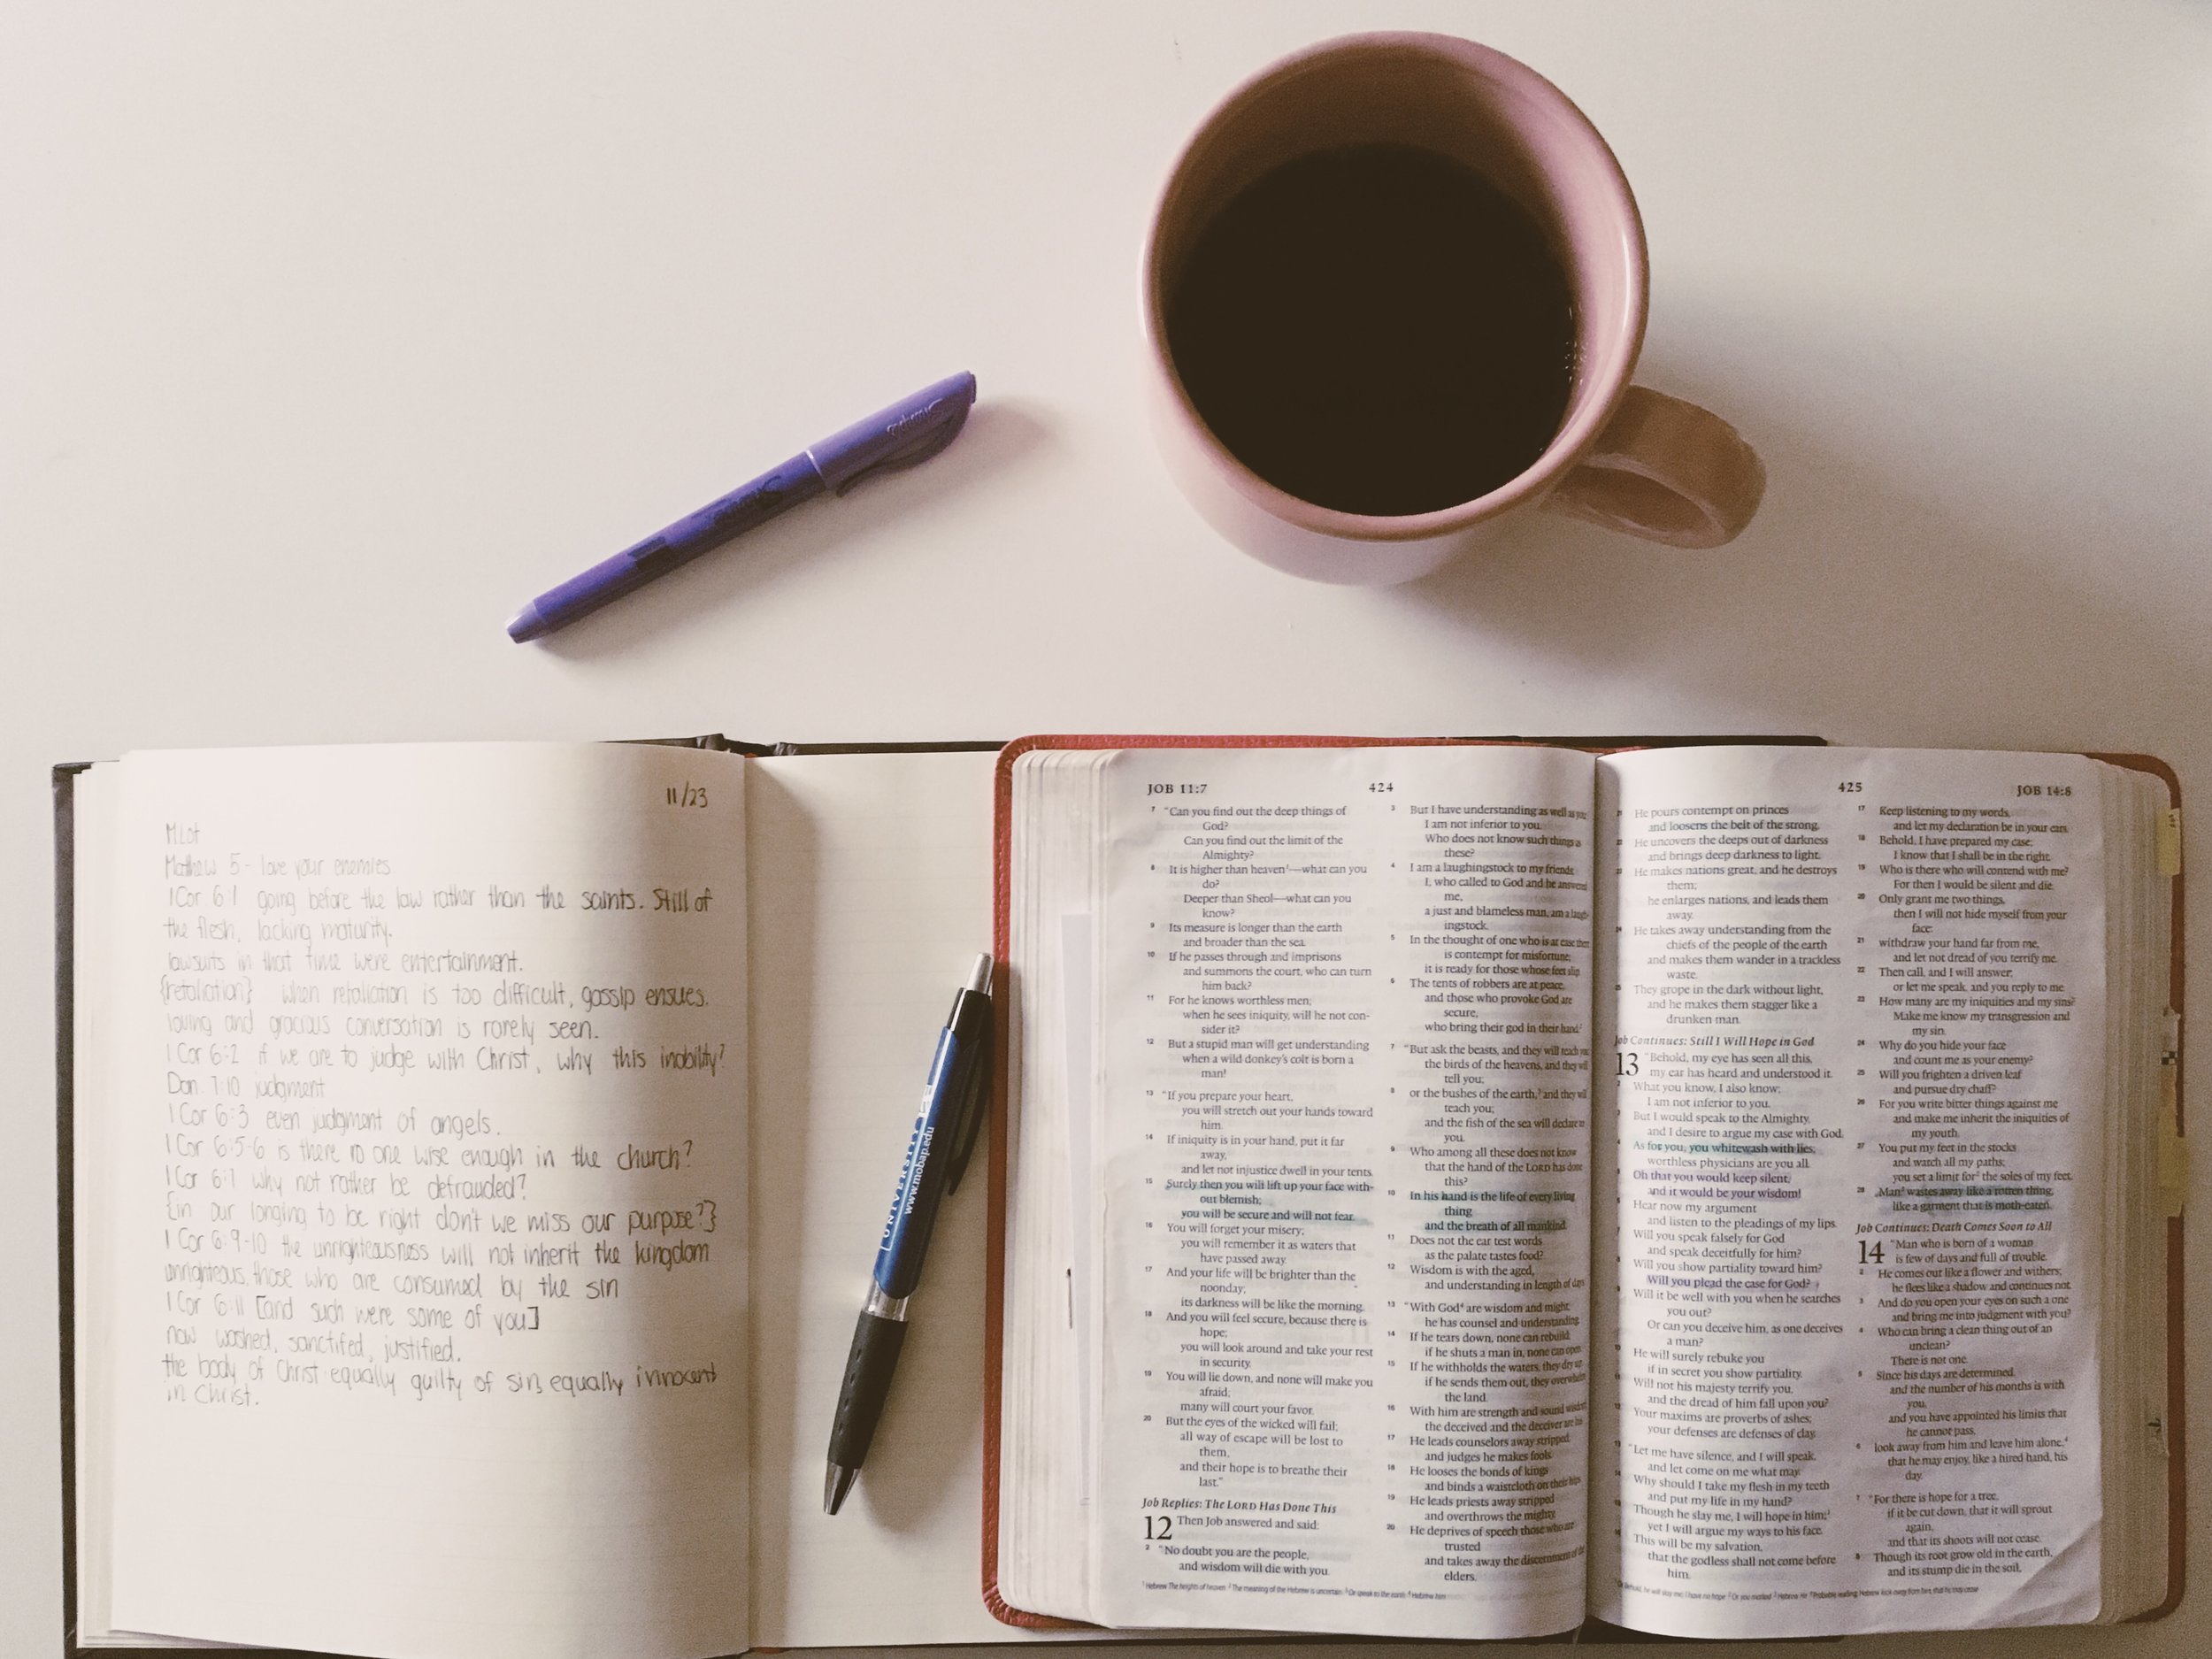 Sharpie
Sharpie
11/23
M.Lot
Matthew 5 - love your enemies
1 Cor 6:1 going before the law rather than the saints. Still of
the flesh, lacking maturity.
lawsuits in that time were entertainment.
{retaliation} when retaliation is too difficult, gossip ensues.
loving and gracious conversation is rarely seen.
1 Cor 6:2 if we are to judge with Christ, why this inability?
Dan. 7:10 judgment
1 Cor 6:3 even judgment of angels.
1 Cor 6:5-6 is there no one wise enough in the church?
1 Cor 6:7 why not rather be defrauded?
{in our longing to be right don't we miss our purpose?}
1 Cor 6:9-10 the unrighteousness will not inherit the kingdom
unrighteous, those who are consumed by the sin
1 Cor 6:11 [and such were some of you]
now washed, sanctifed, justified.
the body of Christ equally guilty of sin, equally innocent
in Christ.
UNIVERSITY
www.mobap.edu
JOB 11:7
424
7 "Can you find out the deep things of
God?
Can you find out the limit of the
Almighty?
8 It is higher than heaven1—what can you
do?
Deeper than Sheol—what can you
know?
9 Its measure is longer than the earth
and broader than the sea.
10 If he passes through and imprisons
and summons the court, who can turn
him back?
11 For he knows worthless men;
when he sees iniquity, will he not con-
sider it?
12 But a stupid man will get understanding
when a wild donkey's colt is born a
man!
13 "If you prepare your heart,
you will stretch out your hands toward
him.
14 If iniquity is in your hand, put it far
away,
and let not injustice dwell in your tents.
15 Surely then you will lift up your face with-
out blemish;
you will be secure and will not fear.
16 You will forget your misery;
you will remember it as waters that
have passed away.
17 And your life will be brighter than the
noonday;
its darkness will be like the morning.
18 And you will feel secure, because there is
hope;
you will look around and take your rest
in security.
19 You will lie down, and none will make you
afraid;
many will court your favor.
20 But the eyes of the wicked will fail;
all way of escape will be lost to
them,
and their hope is to breathe their
last."
Job Replies: The LORD Has Done This
12 Then Job answered and said:
2 "No doubt you are the people,
and wisdom will die with you.
3 But I have understanding as well as you;
I am not inferior to you.
Who does not know such things as
these?
4 I am a laughingstock to my friends;
I, who called to God and he answered
me,
a just and blameless man, am a laugh-
ingstock.
5 In the thought of one who is at ease there
is contempt for misfortune;
it is ready for those whose feet slip.
6 The tents of robbers are at peace,
and those who provoke God are
secure,
who bring their god in their hand.2
7 "But ask the beasts, and they will teach you;
the birds of the heavens, and they will
tell you;
8 or the bushes of the earth,3 and they will
teach you;
and the fish of the sea will declare to
you.
9 Who among all these does not know
that the hand of the LORD has done
this?
10 In his hand is the life of every living
thing
and the breath of all mankind.
11 Does not the ear test words
as the palate tastes food?
12 Wisdom is with the aged,
and understanding in length of days.
13 "With God4 are wisdom and might;
he has counsel and understanding.
14 If he tears down, none can rebuild;
if he shuts a man in, none can open.
15 If he withholds the waters, they dry up;
if he sends them out, they overwhelm
the land.
16 With him are strength and sound wisdom;
the deceived and the deceiver are his.
17 He leads counselors away stripped,
and judges he makes fools.
18 He looses the bonds of kings
and binds a waistcloth on their hips.
19 He leads priests away stripped
and overthrows the mighty.
20 He deprives of speech those who are
trusted
and takes away the discernment of the
elders.
1 Hebrew The heights of heaven 2 The meaning of the Hebrew is uncertain 3 Or speak to the earth 4 Hebrew him
425
JOB 14:8
He pours contempt on princes
and loosens the belt of the strong.
He uncovers the deeps out of darkness
and brings deep darkness to light.
He makes nations great, and he destroys
them;
he enlarges nations, and leads them
away.
He takes away understanding from the
chiefs of the people of the earth
and makes them wander in a trackless
waste.
They grope in the dark without light,
and he makes them stagger like a
drunken man.
Job Continues: Still I Will Hope in God
13 "Behold, my eye has seen all this,
my ear has heard and understood it.
What you know, I also know;
I am not inferior to you.
But I would speak to the Almighty,
and I desire to argue my case with God.
As for you, you whitewash with lies;
worthless physicians are you all.
Oh that you would keep silent,
and it would be your wisdom!
Hear now my argument
and listen to the pleadings of my lips.
Will you speak falsely for God
and speak deceitfully for him?
Will you show partiality toward him?
Will you plead the case for God?
Will it be well with you when he searches
you out?
Or can you deceive him, as one deceives
a man?
He will surely rebuke you
if in secret you show partiality.
Will not his majesty terrify you,
and the dread of him fall upon you?
Your maxims are proverbs of ashes;
your defenses are defenses of clay.
"Let me have silence, and I will speak,
and let come on me what may.
Why should I take my flesh in my teeth
and put my life in my hand?
Though he slay me, I will hope in him;1
yet I will argue my ways to his face.
This will be my salvation,
that the godless shall not come before
him.
17 Keep listening to my words,
and let my declaration be in your ears.
18 Behold, I have prepared my case;
I know that I shall be in the right.
19 Who is there who will contend with me?
For then I would be silent and die.
20 Only grant me two things,
then I will not hide myself from your
face:
21 withdraw your hand far from me,
and let not dread of you terrify me.
22 Then call, and I will answer;
or let me speak, and you reply to me.
23 How many are my iniquities and my sins?
Make me know my transgression and
my sin.
24 Why do you hide your face
and count me as your enemy?
25 Will you frighten a driven leaf
and pursue dry chaff?
26 For you write bitter things against me
and make me inherit the iniquities of
my youth.
27 You put my feet in the stocks
and watch all my paths;
you set a limit for2 the soles of my feet.
28 Man3 wastes away like a rotten thing,
like a garment that is moth-eaten.
Job Continues: Death Comes Soon to All
14 "Man who is born of a woman
is few of days and full of trouble.
2 He comes out like a flower and withers;
he flees like a shadow and continues not.
3 And do you open your eyes on such a one
and bring me into judgment with you?
4 Who can bring a clean thing out of an
unclean?
There is not one.
5 Since his days are determined,
and the number of his months is with
you,
and you have appointed his limits that
he cannot pass,
6 look away from him and leave him alone,4
that he may enjoy, like a hired hand, his
day.
7 "For there is hope for a tree,
if it be cut down, that it will sprout
again,
and that its shoots will not cease.
8 Though its root grow old in the earth,
and its stump die in the soil,
Behold, he will slay me; I have no hope 2 Or you marked 3 Hebrew He 4 Probable reading; Hebrew look away from him, that he may cease